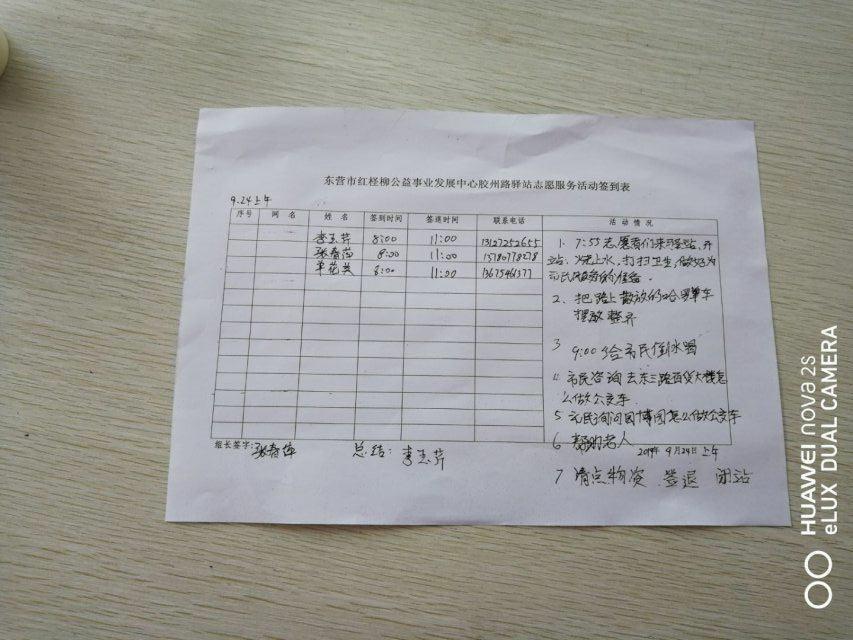 东营市红柽柳公益事业发展中心胶州路驿站志愿服务活动签到表
9.24上午
序号 网名 姓名 签到时间 签退时间 联系电话 活动情况
李玉芹 8:00 11:00 13127252655
张春萍 8:00 11:00 15780778278
单花美 8:00 11:00
1. 7:55志愿者们来到驿站、开
站、烧上水，打扫卫生，做好为
市民服务的准备.
2、把路上散放的哈罗单车
摆放整齐
3 9:00给市民倒水喝
4. 市民咨询去东三路百货大楼怎
么做公交车
5 市民询问园博园怎么做公交车
6 帮助老人
2019年9月24日上午
7 清点物资 签退 闭站
组长签字:张春萍 总结：李玉芹
HUAWEI nova 2s
eLUX DUAL CAMERA